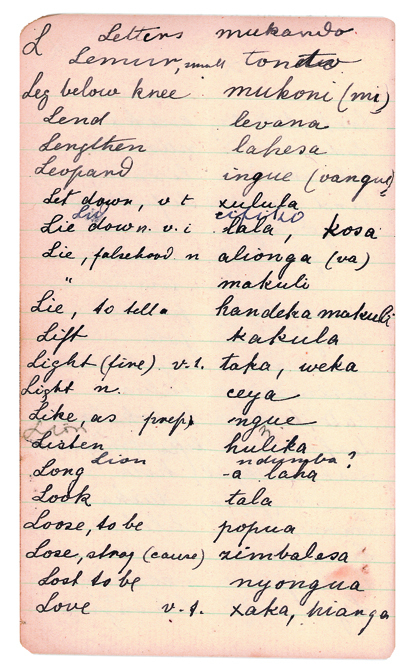 L Letters mukanda
Lemur, small
Leg below knee mukoni (mi)
Lend levana
Lengthen lahesa
Leopard ingue (vangue)
Let down, v t xulula
Lid
Lie down. v. i lala, kosa
Lie, falsehood n alionga (va)
" makuli
Lie, to tell handeka makuli
Lift kakula
Light (fire) v.t. taka, weka
Light n. ceya
Like, as prep, ngue
Listen hulika
Lion ndumba?
Long -a laha
Look tala
Loose, to be popua
Lose, stray (cause) zimbalesa
Lost to be nyongua
Love v.t. xaka, hianga